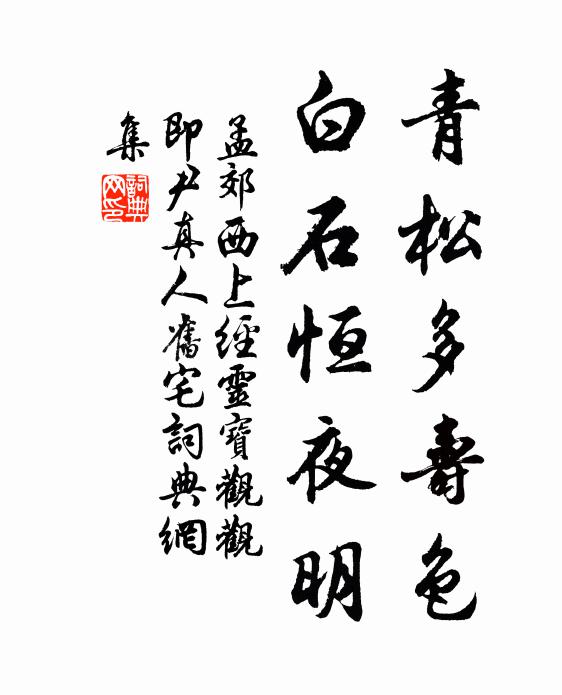 青松多壽色
白石恒夜明
孟郊西上經靈寶觀觀
即尹真人舊宅詞典網
集
詞典网印